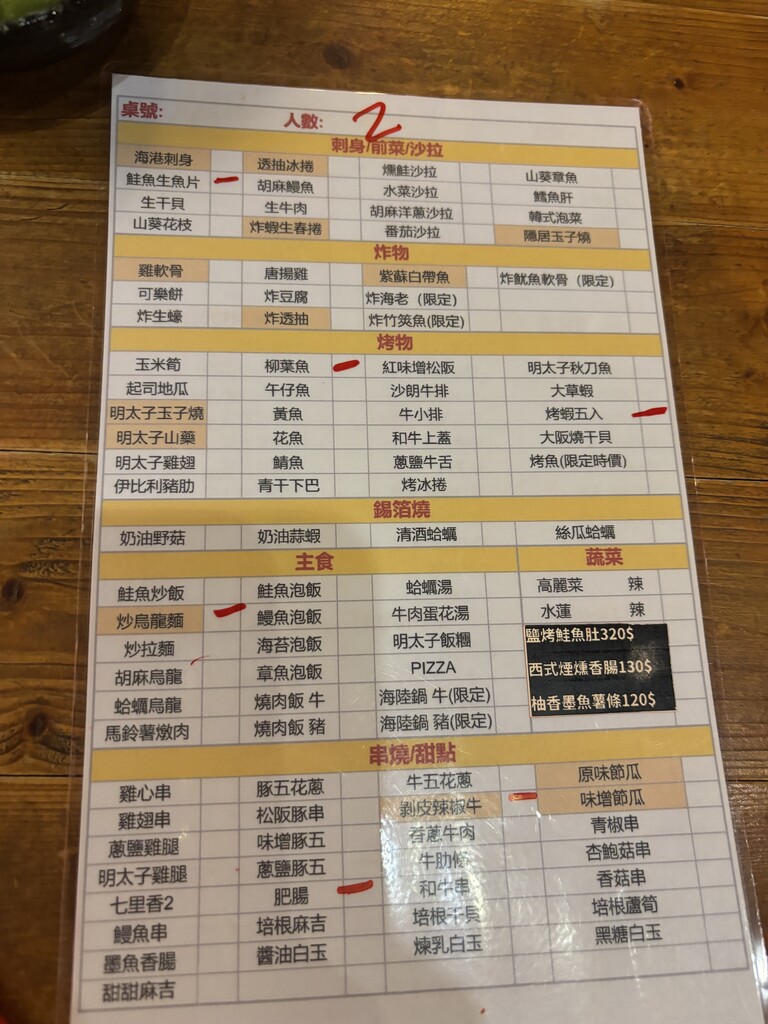 桌號: 人數: 2
刺身/前菜/沙拉
海港刺身 透抽冰捲 燻鮭沙拉 山葵章魚
鮭魚生魚片 胡麻鰻魚 水菜沙拉 鱈魚肝
生干貝 生牛肉 胡麻洋蔥沙拉 韓式泡菜
山葵花枝 炸蝦生春捲 番茄沙拉 隱居玉子燒
炸物
雞軟骨 唐揚雞 紫蘇白帶魚 炸魷魚軟骨（限定）
可樂餅 炸豆腐 炸海老（限定）
炸生蠔 炸透抽 炸竹筴魚(限定)
烤物
玉米筍 柳葉魚 紅味增松阪 明太子秋刀魚
起司地瓜 午仔魚 沙朗牛排 大草蝦
明太子玉子燒 黃魚 牛小排 烤蝦五入
明太子山藥 花魚 和牛上蓋 大阪燒干貝
明太子雞翅 鯖魚 蔥鹽牛舌 烤魚(限定時價)
伊比利豬肋 青干下巴 烤冰捲
錫箔燒
奶油野菇 奶油蒜蝦 清酒蛤蠣 絲瓜蛤蠣
主食 蔬菜
鮭魚炒飯 鮭魚泡飯 蛤蠣湯 高麗菜 辣
炒烏龍麵 鰻魚泡飯 牛肉蛋花湯 水蓮 辣
炒拉麵 海苔泡飯 明太子飯糰 鹽烤鮭魚肚320$
胡麻烏龍 章魚泡飯 PIZZA 西式煙燻香腸130$
蛤蠣烏龍 燒肉飯 牛 海陸鍋 牛(限定) 柚香墨魚薯條120$
馬鈴薯燉肉 燒肉飯 豬 海陸鍋 豬(限定)
串燒/甜點
雞心串 豚五花蔥 牛五花蔥 原味節瓜
雞翅串 松阪豚串 剝皮辣椒牛 味增節瓜
蔥鹽雞腿 味增豚五 香蔥牛肉 青椒串
明太子雞腿 蔥鹽豚五 牛肋條 杏鮑菇串
七里香2 肥腸 和牛串 香菇串
鰻魚串 培根麻吉 培根干貝 培根蘆筍
墨魚香腸 醬油白玉 煉乳白玉 黑糖白玉
甜甜麻吉